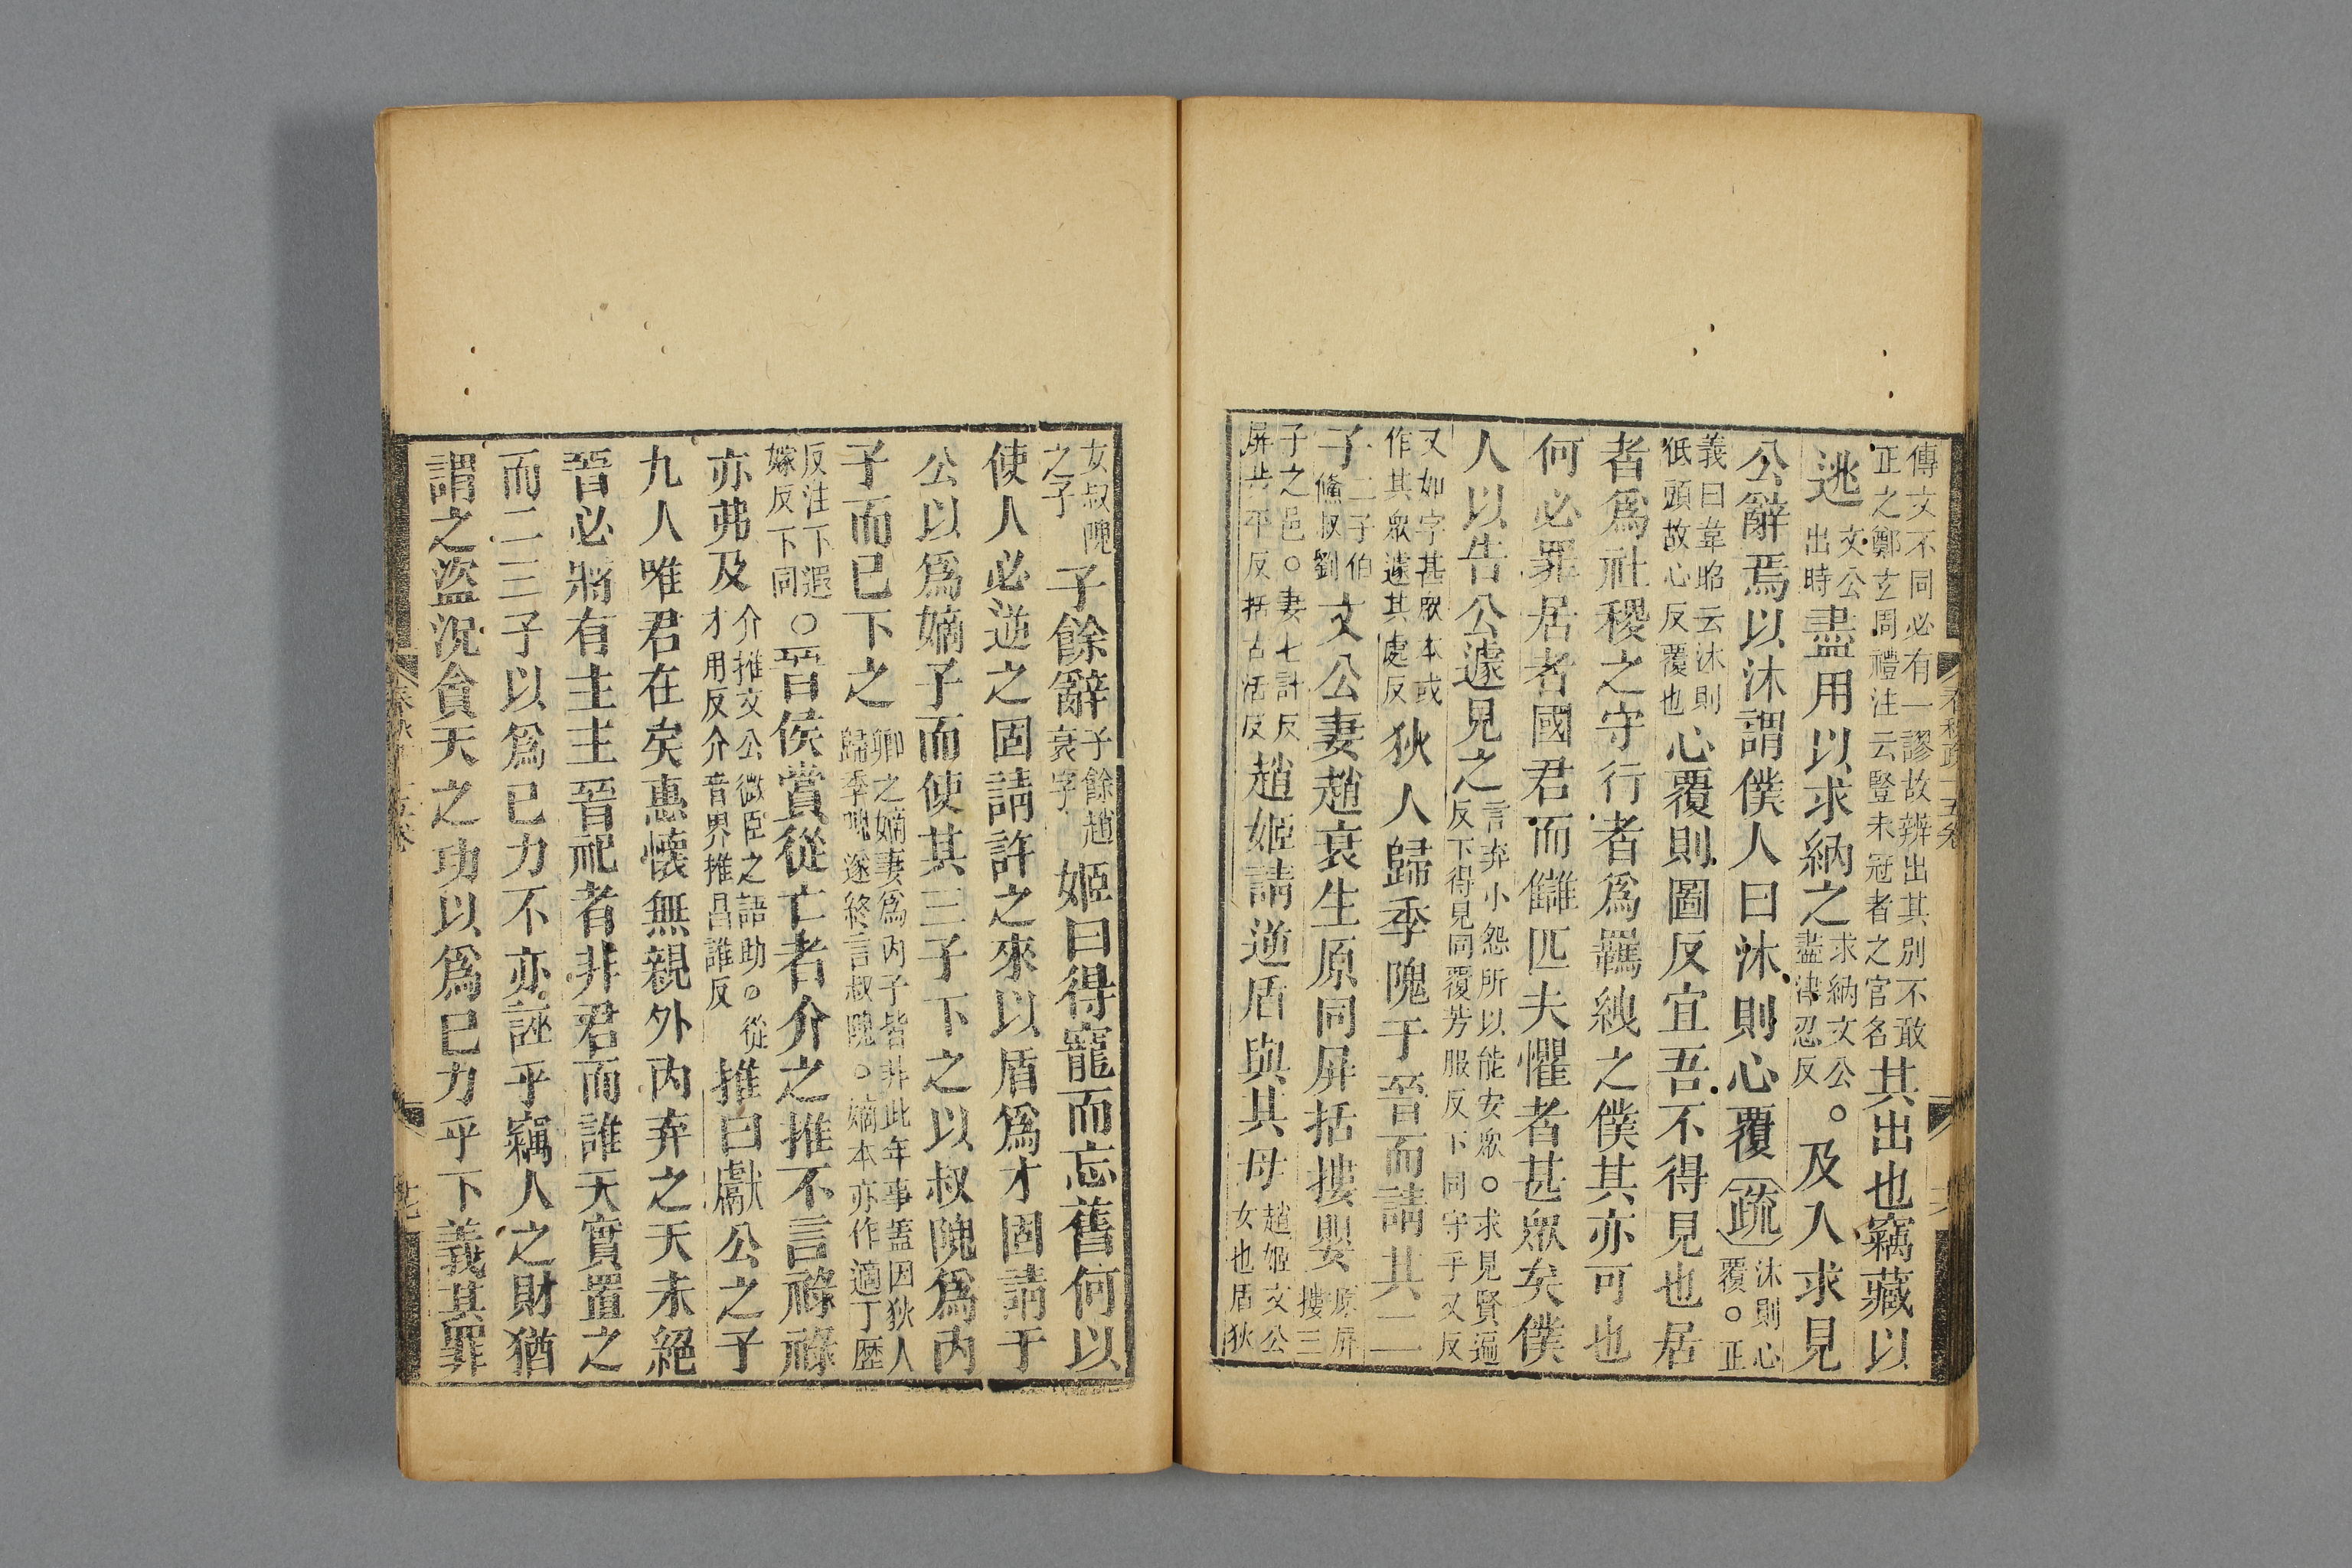 傳文不同必有一謬故辨出其別不敢正之鄭玄周禮注云豎未冠者之官名其出也竊藏以
逃文公出時盡用以求納之求納文公。盡津忍反及入求見
公辭焉以沐謂僕人曰沐則心覆疏沐則心覆。正
義曰韋昭云沐則低頭故心反覆也心覆則圖反宜吾不得見也居
者爲社稷之守行者爲羈絏之僕其亦可也
何必罪居者國君而讎匹夫懼者甚眾矣僕
人以告公遽見之言弃小怨所以能安眾。求見賢遍反下得見同覆芳服反下同守手又反
又如字甚眾本或作其眾遽其處反狄人歸季隗于晉而請其二
子二子伯儵叔劉文公妻趙衰生原同屏括摟嬰原屏摟三
子之邑。妻七計反屏步平反括古活反趙姬請逆盾與其母趙姬文公女也盾狄
女叔隗之子子餘辭子餘趙衰字姬曰得寵而忘舊何以
使人必逆之固請許之來以盾爲才固請于
公以爲嫡子而使其三子下之以叔隗爲內
子而已下之卿之嫡妻爲內子皆非此年事蓋因狄人歸季隗遂終言叔隗。嫡本亦作適丁歷
反注下遐嫁反下同〇晉侯賞從亡者介之推不言祿祿
亦弗及介推文公微臣之語助。從才用反介音界推昌誰反推曰獻公之子
九人唯君在矣惠懷無親外內弃之天未絕
晉必將有主主晉祀者非君而誰天實置之
而二三子以爲已力不亦誣乎竊人之財猶
謂之盜況貪天之功以爲已力乎下義其罪